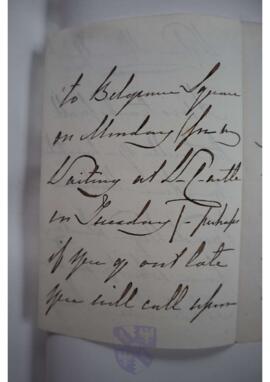 to Belgrave Square
on Monday (for a
Waiting at D. Castle
on Tuesday) - perhaps
if you go out late
you will call upon